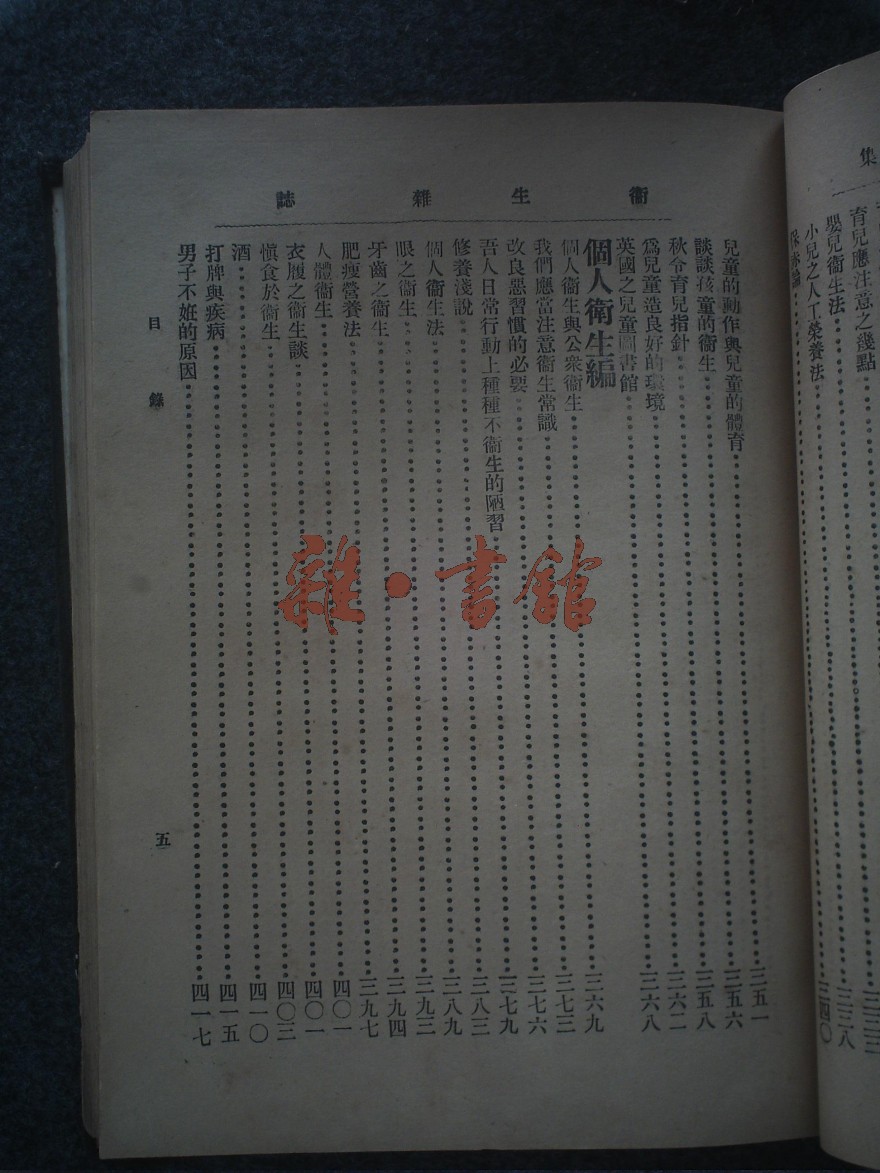 集
育兒應注意之幾點
嬰兒衞生法……三三八
小兒之人工榮養法……三四〇
衞生雜誌
兒童的動作與兒童的體育……三五一
談談孩童的衞生……三五六
秋令育兒指針……三五八
爲兒童造良好的環境……三六二
英國之兒童圖書館……三六八
個人衞生編
個人衞生與公衆衞生……三六九
我們應當注意衞生常識……三七三
改良惡習慣的必要……三七六
吾人日常行動上種種不衞生的陋習……三七九
修養淺說……三八三
個人衞生法……三八九
眼之衞生……三九三
牙齒之衞生……三九四
肥瘦營養法……三九七
人體衞生……四〇一
衣履之衞生談……四〇一
愼食於衞生……四〇三
酒……四一〇
打牌與疾病……四一五
男子不姙的原因……四一七
目錄
五
雜·書館